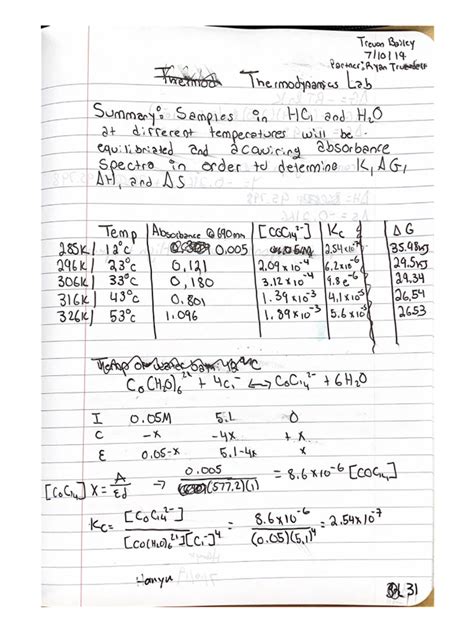 Trevon Bailey
7/10/14
Partner: Ryan
Thermodynamics Lab
Summary: Samples in HCl and H2O
at different temperatures will be
equilibriated and acquiring absorbance
Spectra in order to determine K, ΔG,
ΔH, and ΔS
Temp | Absorbance @ 690nm | [CoCl4²⁻] | Kc | ΔG
285K | 12°C | 0.005 | | 2.54x10⁻⁷ | 35.48kJ
296K | 23°C | 0.121 | 2.09x10⁻⁴ | 6.2x10⁻⁶ | 29.5kJ
306K | 33°C | 0.180 | 3.12x10⁻⁴ | 9.8e⁻⁶ | 29.34
316K | 43°C | 0.801 | 1.39x10⁻³ | 4.1x10⁻⁵ | 26.54
326K | 53°C | 1.096 | 1.89x10⁻³ | 5.6x10⁻⁵ | 26.53
Co(H2O)6²⁺ + 4Cl⁻ ⟷ CoCl4²⁻ + 6H2O
I 0.05M 5.1 0
C -x -4x +x
E 0.05-x 5.1-4x x
[CoCl4] X = A/εd → 0.005/(577.2)(1) = 8.6x10⁻⁶ [CoCl4]
Kc = [CoCl4²⁻]/[Co(H2O)6²⁺][Cl⁻]⁴ = 8.6x10⁻⁶/(0.05)(5.1)⁴ = 2.54x10⁻⁷
31